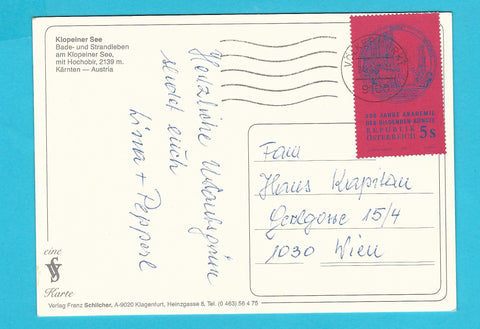 Klopeiner See
Bade- und Strandleben
am Klopeiner See,
mit Hochobir, 2139 m.
Kärnten — Austria
Herzliche Urlaubsgrüße
sendet euch
Lina + Pepperl
eine
Karte
Verlag Franz Schilcher, A-9020 Klagenfurt, Heinzgasse 8, Tel. (0 463) 56 4 75
300 JAHRE AKADEMIE
DER BILDENDEN KÜNSTE
REPUBLIK
ÖSTERREICH 5s
Fam
Hans Kapitan
15/4
1030 Wien